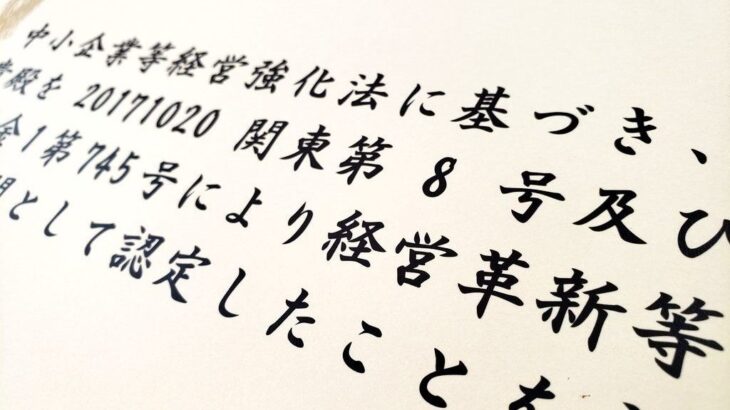 中小企業等経営強化法に基づき、
殿を 20171020 関東第 8 号及び
金1第745号により経営革新等
として認定したことを